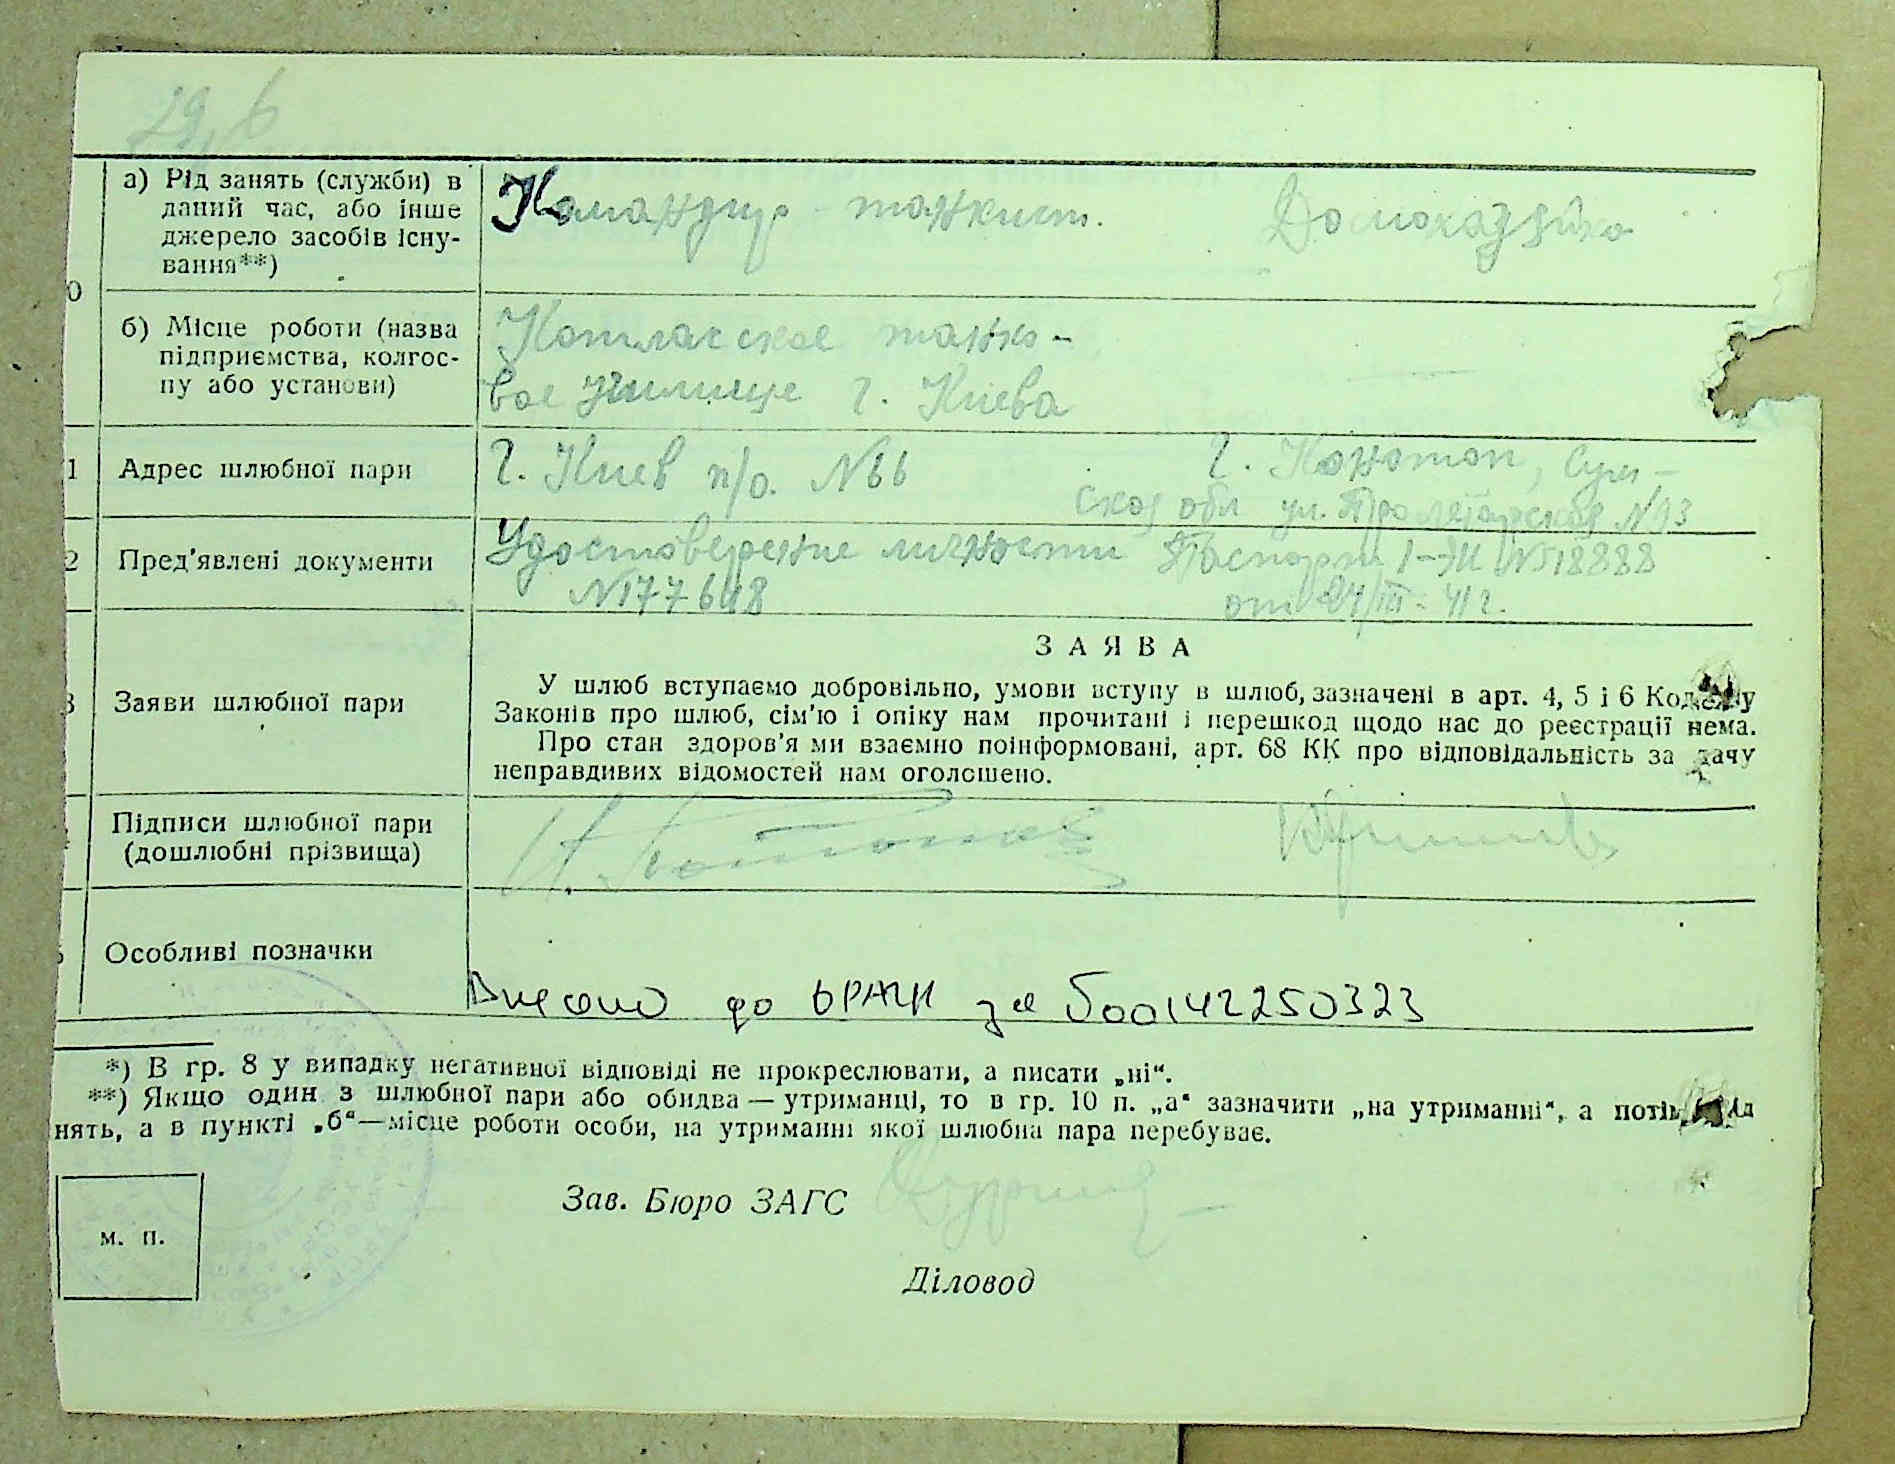 29,б
а) Рід занять (служби) в
даний час, або інше
джерело засобів існу-
вання**)
Командир танкист.
Домохазяйка
0
б) Місце роботи (назва
підприємства, колгос-
пу або установи)
танко-
вое училище г. Киева
1
Адрес шлюбної пари
г. Киев п/о. №66
г. Конотоп, Сум-
ской обл ул. Пролетарская №93
2
Пред'явлені документи
Удостоверение личности
№177648
Паспорт
от 24/III-41г.
3
Заяви шлюбної пари
ЗАЯВА
У шлюб вступаємо добровільно, умови вступу в шлюб, зазначені в арт. 4, 5 і 6 Кодексу
Законів про шлюб, сім'ю і опіку нам прочитані і перешкод щодо нас до реєстрації нема.
Про стан здоров'я ми взаємно поінформовані, арт. 68 КК про відповідальність за дачу
неправдивих відомостей нам оголошено.
Підписи шлюбної пари
(дошлюбні прізвища)
Особливі позначки
Внесено до ДРАЦС за 500142250323
*) В гр. 8 у випадку негативної відповіді не прокреслювати, а писати „ні“.
**) Якщо один з шлюбної пари або обидва — утриманці, то в гр. 10 п. „а“ зазначити „на утриманні“, а потім
нять, а в пункті „б“—місце роботи особи, на утриманні якої шлюбна пара перебуває.
Зав. Бюро ЗАГС
м. п.
Діловод